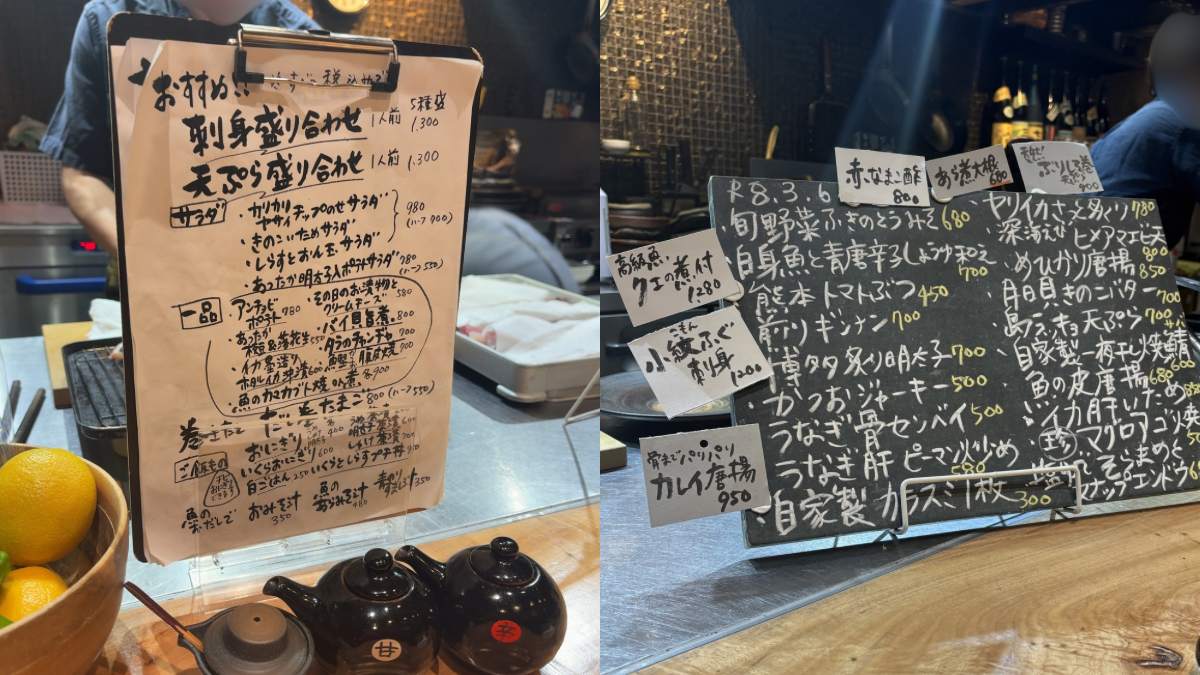 おすすめ!!
刺身盛り合わせ 1人前 5種盛 1,300
天ぷら盛り合わせ 1人前 1,300
サラダ
・カリカリヤサイチップのせサラダ
・きのこいためサラダ
・しらすとおん玉サラダ
980 (ハーフ700)
・あったか明太子入ポテトサラダ 780 (ハーフ550)
一品
アンチョビポテト 780
・その日のお漬物とクリームチーズ 580
・あったか 落花生 550
・バイ貝旨煮 800
・タラのチャンヂャ 700
・イカ墨造り
ホタルイカ沖漬 600
・魚のカマカブト焼 or 煮 各900
だし巻たまご 800 (ハーフ550)
ご飯もの
おにぎり 400
いくらおにぎり 600
白ごはん 250
しらけ茶漬 700
いくらとしらすプチ丼
魚のおだしで
おみそ汁 350
魚のあらみそ汁 480
350
赤なまこ酢 800
あら煮大根 680
天然!ぶりしそ巻天ぷら 900
高級魚 クエの煮付 1280
小紋ふぐ刺身 1200
骨までパリパリ カレイ唐揚 950
R8.3.6
・旬野菜ふきのとうみそ 680
・白身魚と青唐辛子しょうゆ和え 700
・熊本トマトぶつ 450
・煎りギンナン 700
・博タタ炙り明太子 700
・かつおジャーキー 500
・うなぎ骨センベイ 500
・うなぎ肝ピーマン炒め 580
・自家製カラスミ1枚 300
・ヤリイカさっと炙り 780
・深海えび ヒメアマエビ天 800
・めひかり唐揚 850
・月日貝きのこバター 700
・島ラッキョ天ぷら 700
・自家製一夜干し焼 鯖
・魚の皮唐揚 680
・イカ肝いため
・珍マグロアゴ
そらまめと
スナップエンドウ